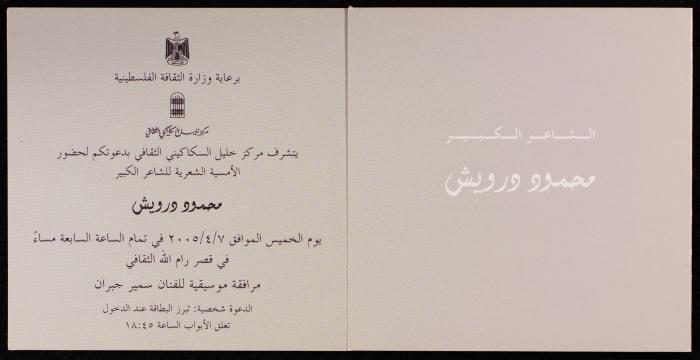 برعاية وزارة الثقافة الفلسطينية
مركز خليل السكاكيني الثقافي
يتشرف مركز خليل السكاكيني الثقافي بدعوتكم لحضور
الأمسية الشعرية للشاعر الكبير
محمود درويش
يوم الخميس الموافق ٢٠٠٥/٤/٧ في تمام الساعة السابعة مساءً
في قصر رام الله الثقافي
مرافقة موسيقية للفنان سمير جبران
الدعوة شخصية: تبرز البطاقة عند الدخول
تغلق الأبواب الساعة ١٨:٤٥
الشاعر الكبير
محمود درويش